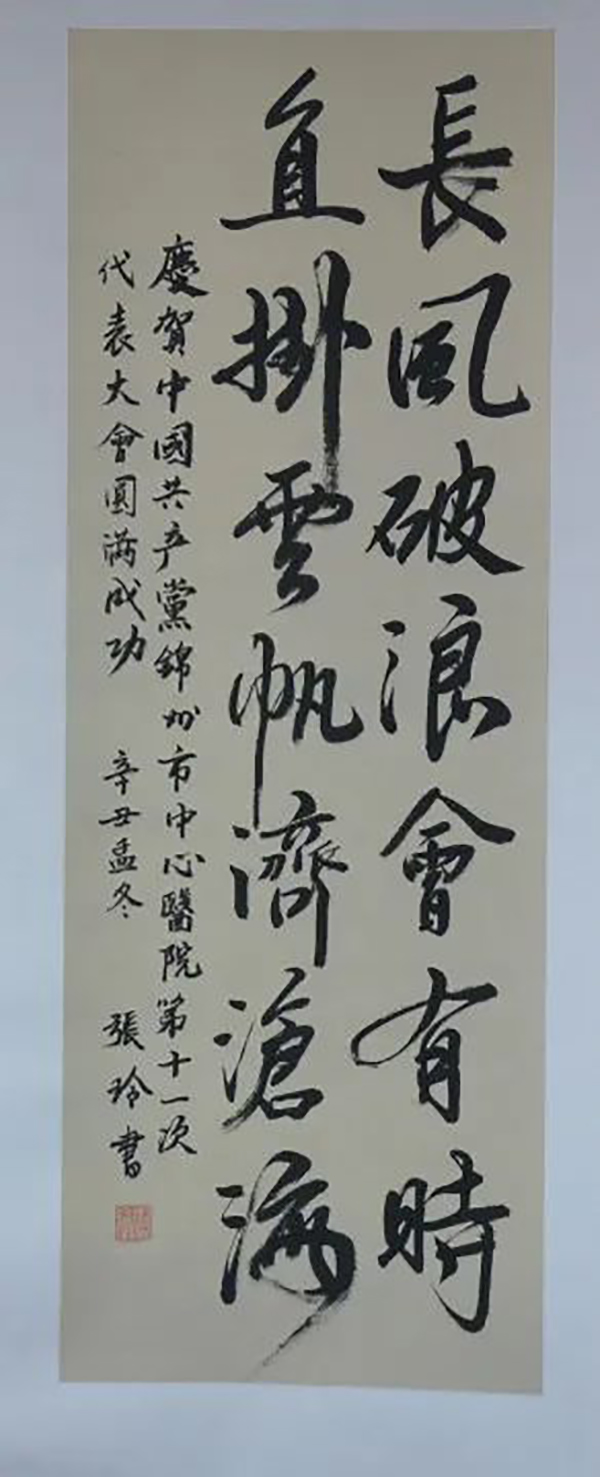 長風破浪會有時
直掛雲帆濟滄海
慶賀中國共产黨錦州市中心醫院第十一次
代表大會圓满成功 辛丑孟冬 張玲書